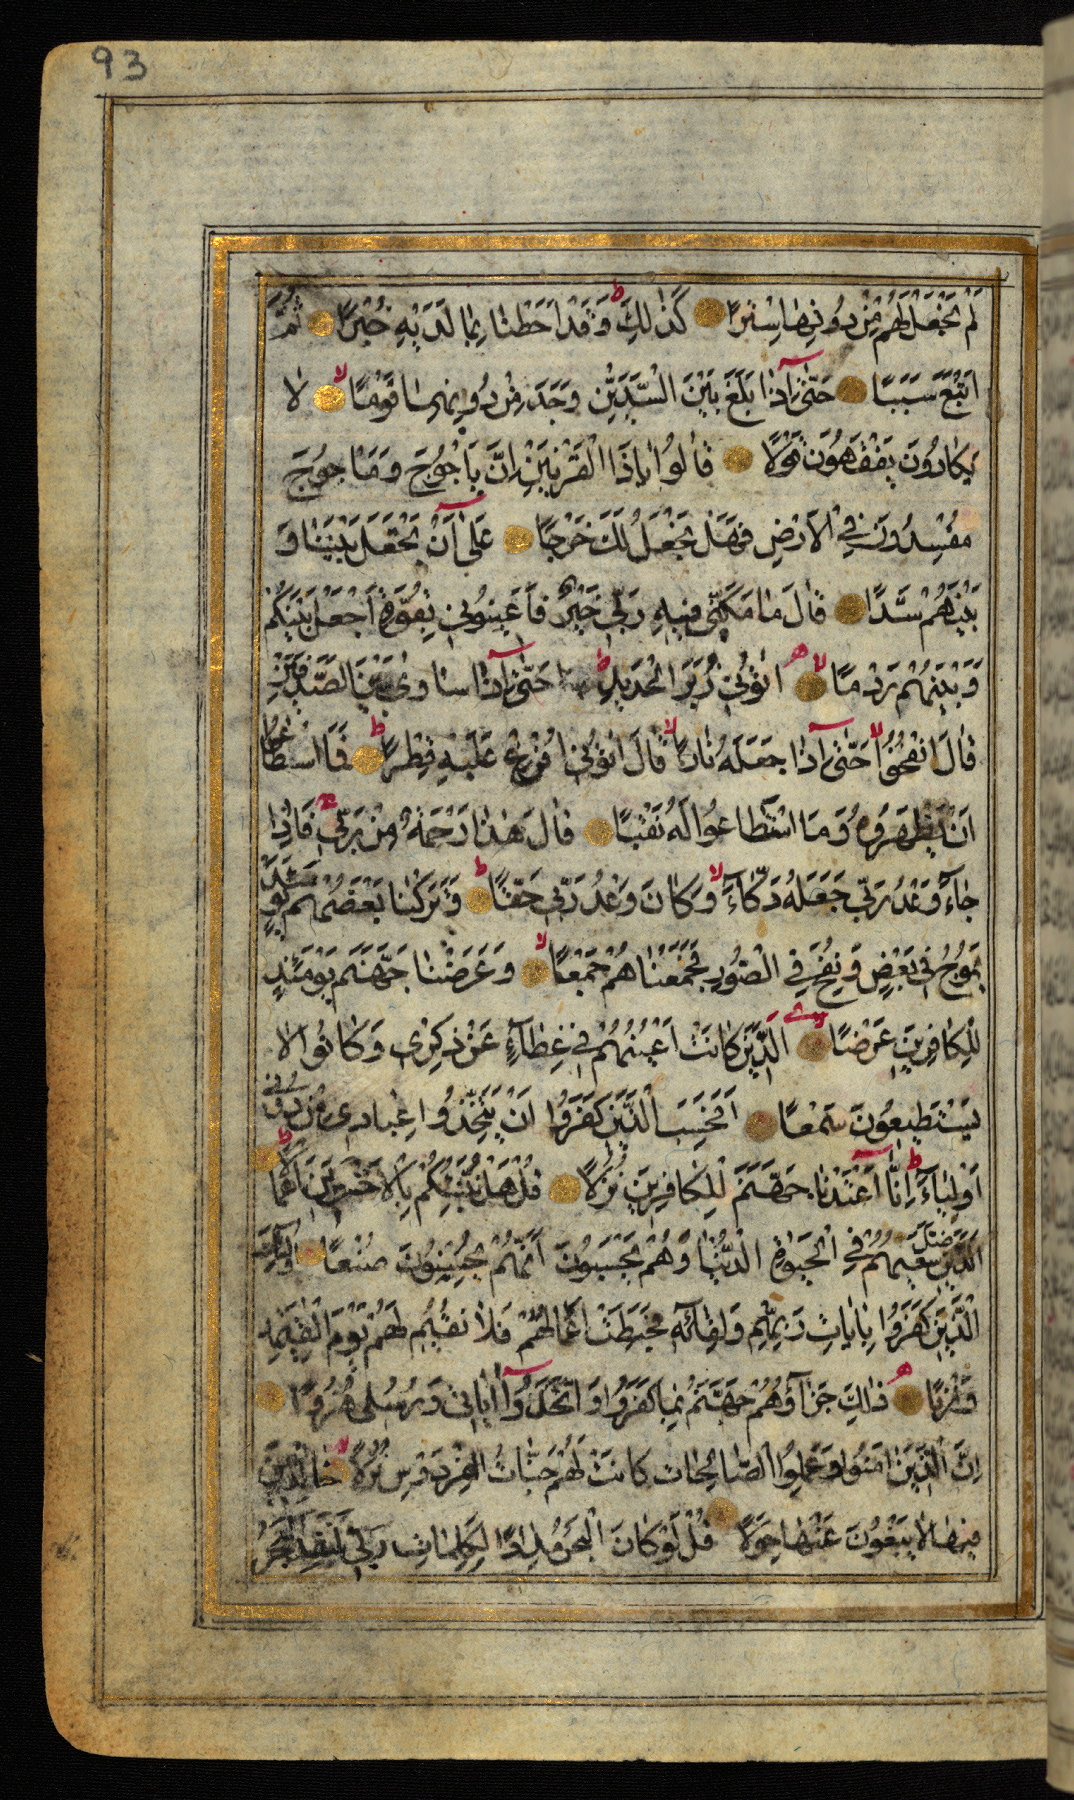 93
لَمْ نَجْعَلْ لَهُمْ مِنْ دُونِهَا سِتْرًا كَذٰلِكَ ط وَقَدْ اَحَطْنَا بِمَا لَدَيْهِ خُبْرًا ثُمَّ
اَتْبَعَ سَبَبًا حَتّٰى اِذَا بَلَغَ بَيْنَ السَّدَّيْنِ وَجَدَ مِنْ دُونِهِمَا قَوْمًا لا لَا
يَكَادُونَ يَفْقَهُونَ قَوْلًا قَالُوا يَا ذَا الْقَرْنَيْنِ اِنَّ يَأْجُوجَ وَمَأْجُوجَ
مُفْسِدُونَ فِي الْاَرْضِ فَهَلْ نَجْعَلُ لَكَ خَرْجًا عَلٰى اَنْ تَجْعَلَ بَيْنَنَا وَ
بَيْنَهُمْ سَدًّا قَالَ مَا مَكَّنِّي فِيهِ رَبِّي خَيْرٌ فَاَعِينُونِي بِقُوَّةٍ اَجْعَلْ بَيْنَكُمْ
وَبَيْنَهُمْ رَدْمًا لا اٰتُونِي زُبَرَ الْحَدِيدِ ط حَتّٰى اِذَا سَاوٰى بَيْنَ الصَّدَفَيْنِ
قَالَ انْفُخُوا لا حَتّٰى اِذَا جَعَلَهُ نَارًا لا قَالَ اٰتُونِي اُفْرِغْ عَلَيْهِ قِطْرًا ط فَمَا اسْطَاعُوا
اَنْ يَظْهَرُوهُ وَمَا اسْتَطَاعُوا لَهُ نَقْبًا قَالَ هٰذَا رَحْمَةٌ مِنْ رَبِّي فَاِذَا
جَاءَ وَعْدُ رَبِّي جَعَلَهُ دَكَّاءَ لا وَكَانَ وَعْدُ رَبِّي حَقًّا ط وَتَرَكْنَا بَعْضَهُمْ يَوْمَئِذٍ
يَمُوجُ فِي بَعْضٍ وَنُفِخَ فِي الصُّورِ فَجَمَعْنَاهُمْ جَمْعًا لا وَعَرَضْنَا جَهَنَّمَ يَوْمَئِذٍ
لِلْكَافِرِينَ عَرْضًا الَّذِينَ كَانَتْ اَعْيُنُهُمْ فِي غِطَاءٍ عَنْ ذِكْرِي وَكَانُوا لَا
يَسْتَطِيعُونَ سَمْعًا اَفَحَسِبَ الَّذِينَ كَفَرُوا اَنْ يَتَّخِذُوا عِبَادِي مِنْ دُونِي
اَوْلِيَاءَ ط اِنَّا اَعْتَدْنَا جَهَنَّمَ لِلْكَافِرِينَ نُزُلًا قُلْ هَلْ نُنَبِّئُكُمْ بِالْاَخْسَرِينَ اَعْمَالًا ط
الَّذِينَ ضَلَّ سَعْيُهُمْ فِي الْحَيٰوةِ الدُّنْيَا وَهُمْ يَحْسَبُونَ اَنَّهُمْ يُحْسِنُونَ صُنْعًا اُولٰئِكَ
الَّذِينَ كَفَرُوا بِاٰيَاتِ رَبِّهِمْ وَلِقَائِهِ فَحَبِطَتْ اَعْمَالُهُمْ فَلَا نُقِيمُ لَهُمْ يَوْمَ الْقِيٰمَةِ
وَزْنًا ذٰلِكَ جَزَاؤُهُمْ جَهَنَّمُ بِمَا كَفَرُوا وَاتَّخَذُوا اٰيَاتِي وَرُسُلِي هُزُوًا
اِنَّ الَّذِينَ اٰمَنُوا وَعَمِلُوا الصَّالِحَاتِ كَانَتْ لَهُمْ جَنَّاتُ الْفِرْدَوْسِ نُزُلًا لا خَالِدِينَ
فِيهَا لَا يَبْغُونَ عَنْهَا حِوَلًا قُلْ لَوْ كَانَ الْبَحْرُ مِدَادًا لِكَلِمَاتِ رَبِّي لَنَفِدَ الْبَحْرُ